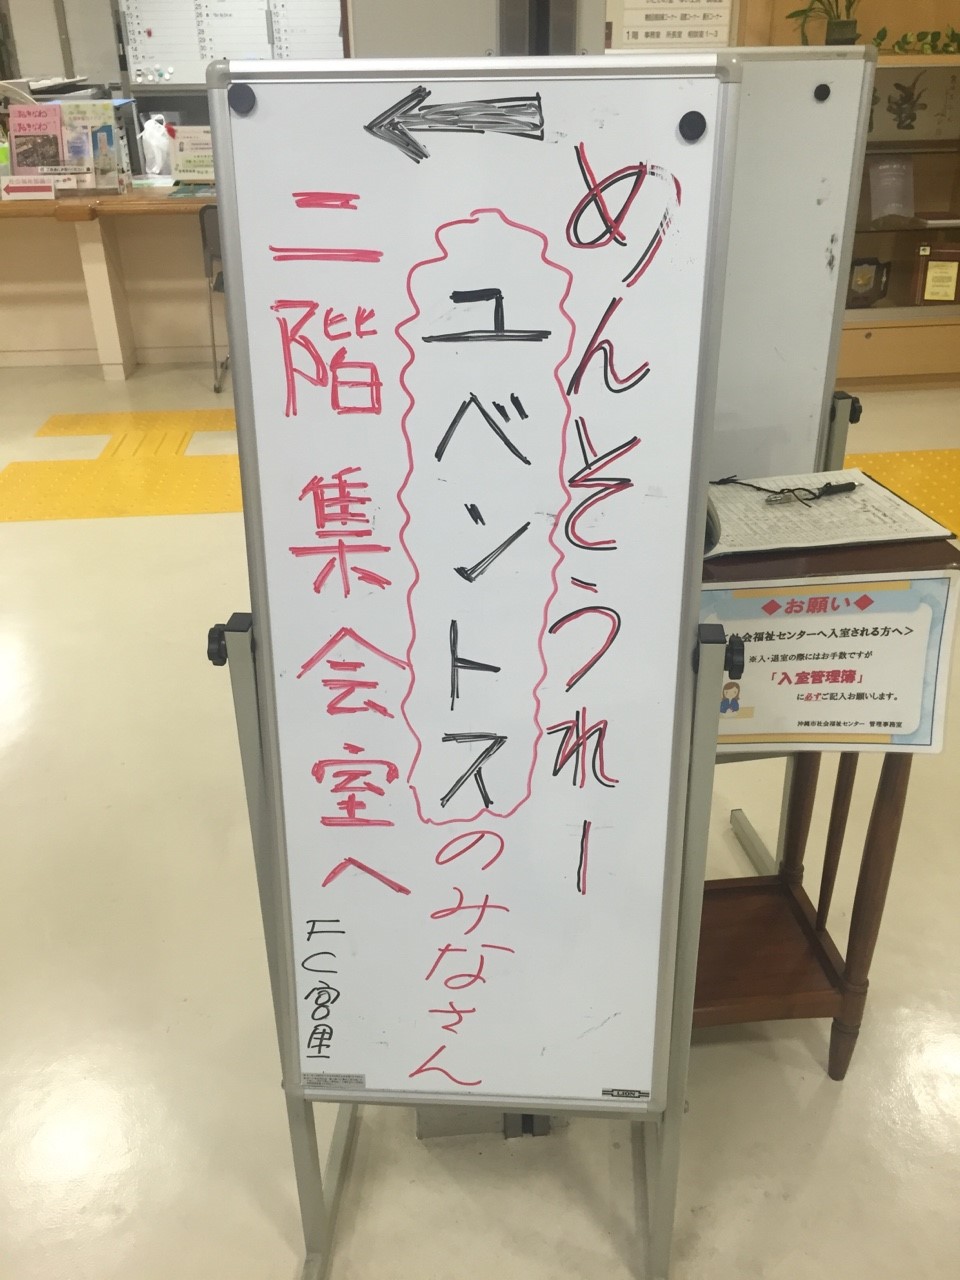 めんそうれー
ユベントスのみなさん
二階集会室へ
FC宮里
LION
1階 事務室 所長室 相談室1〜3
◆お願い◆
社会福祉センターへ入室される方へ>
※入・退室の際にはお手数ですが
「入室管理簿」
に必ずご記入お願いします。
沖縄市社会福祉センター 管理事務室